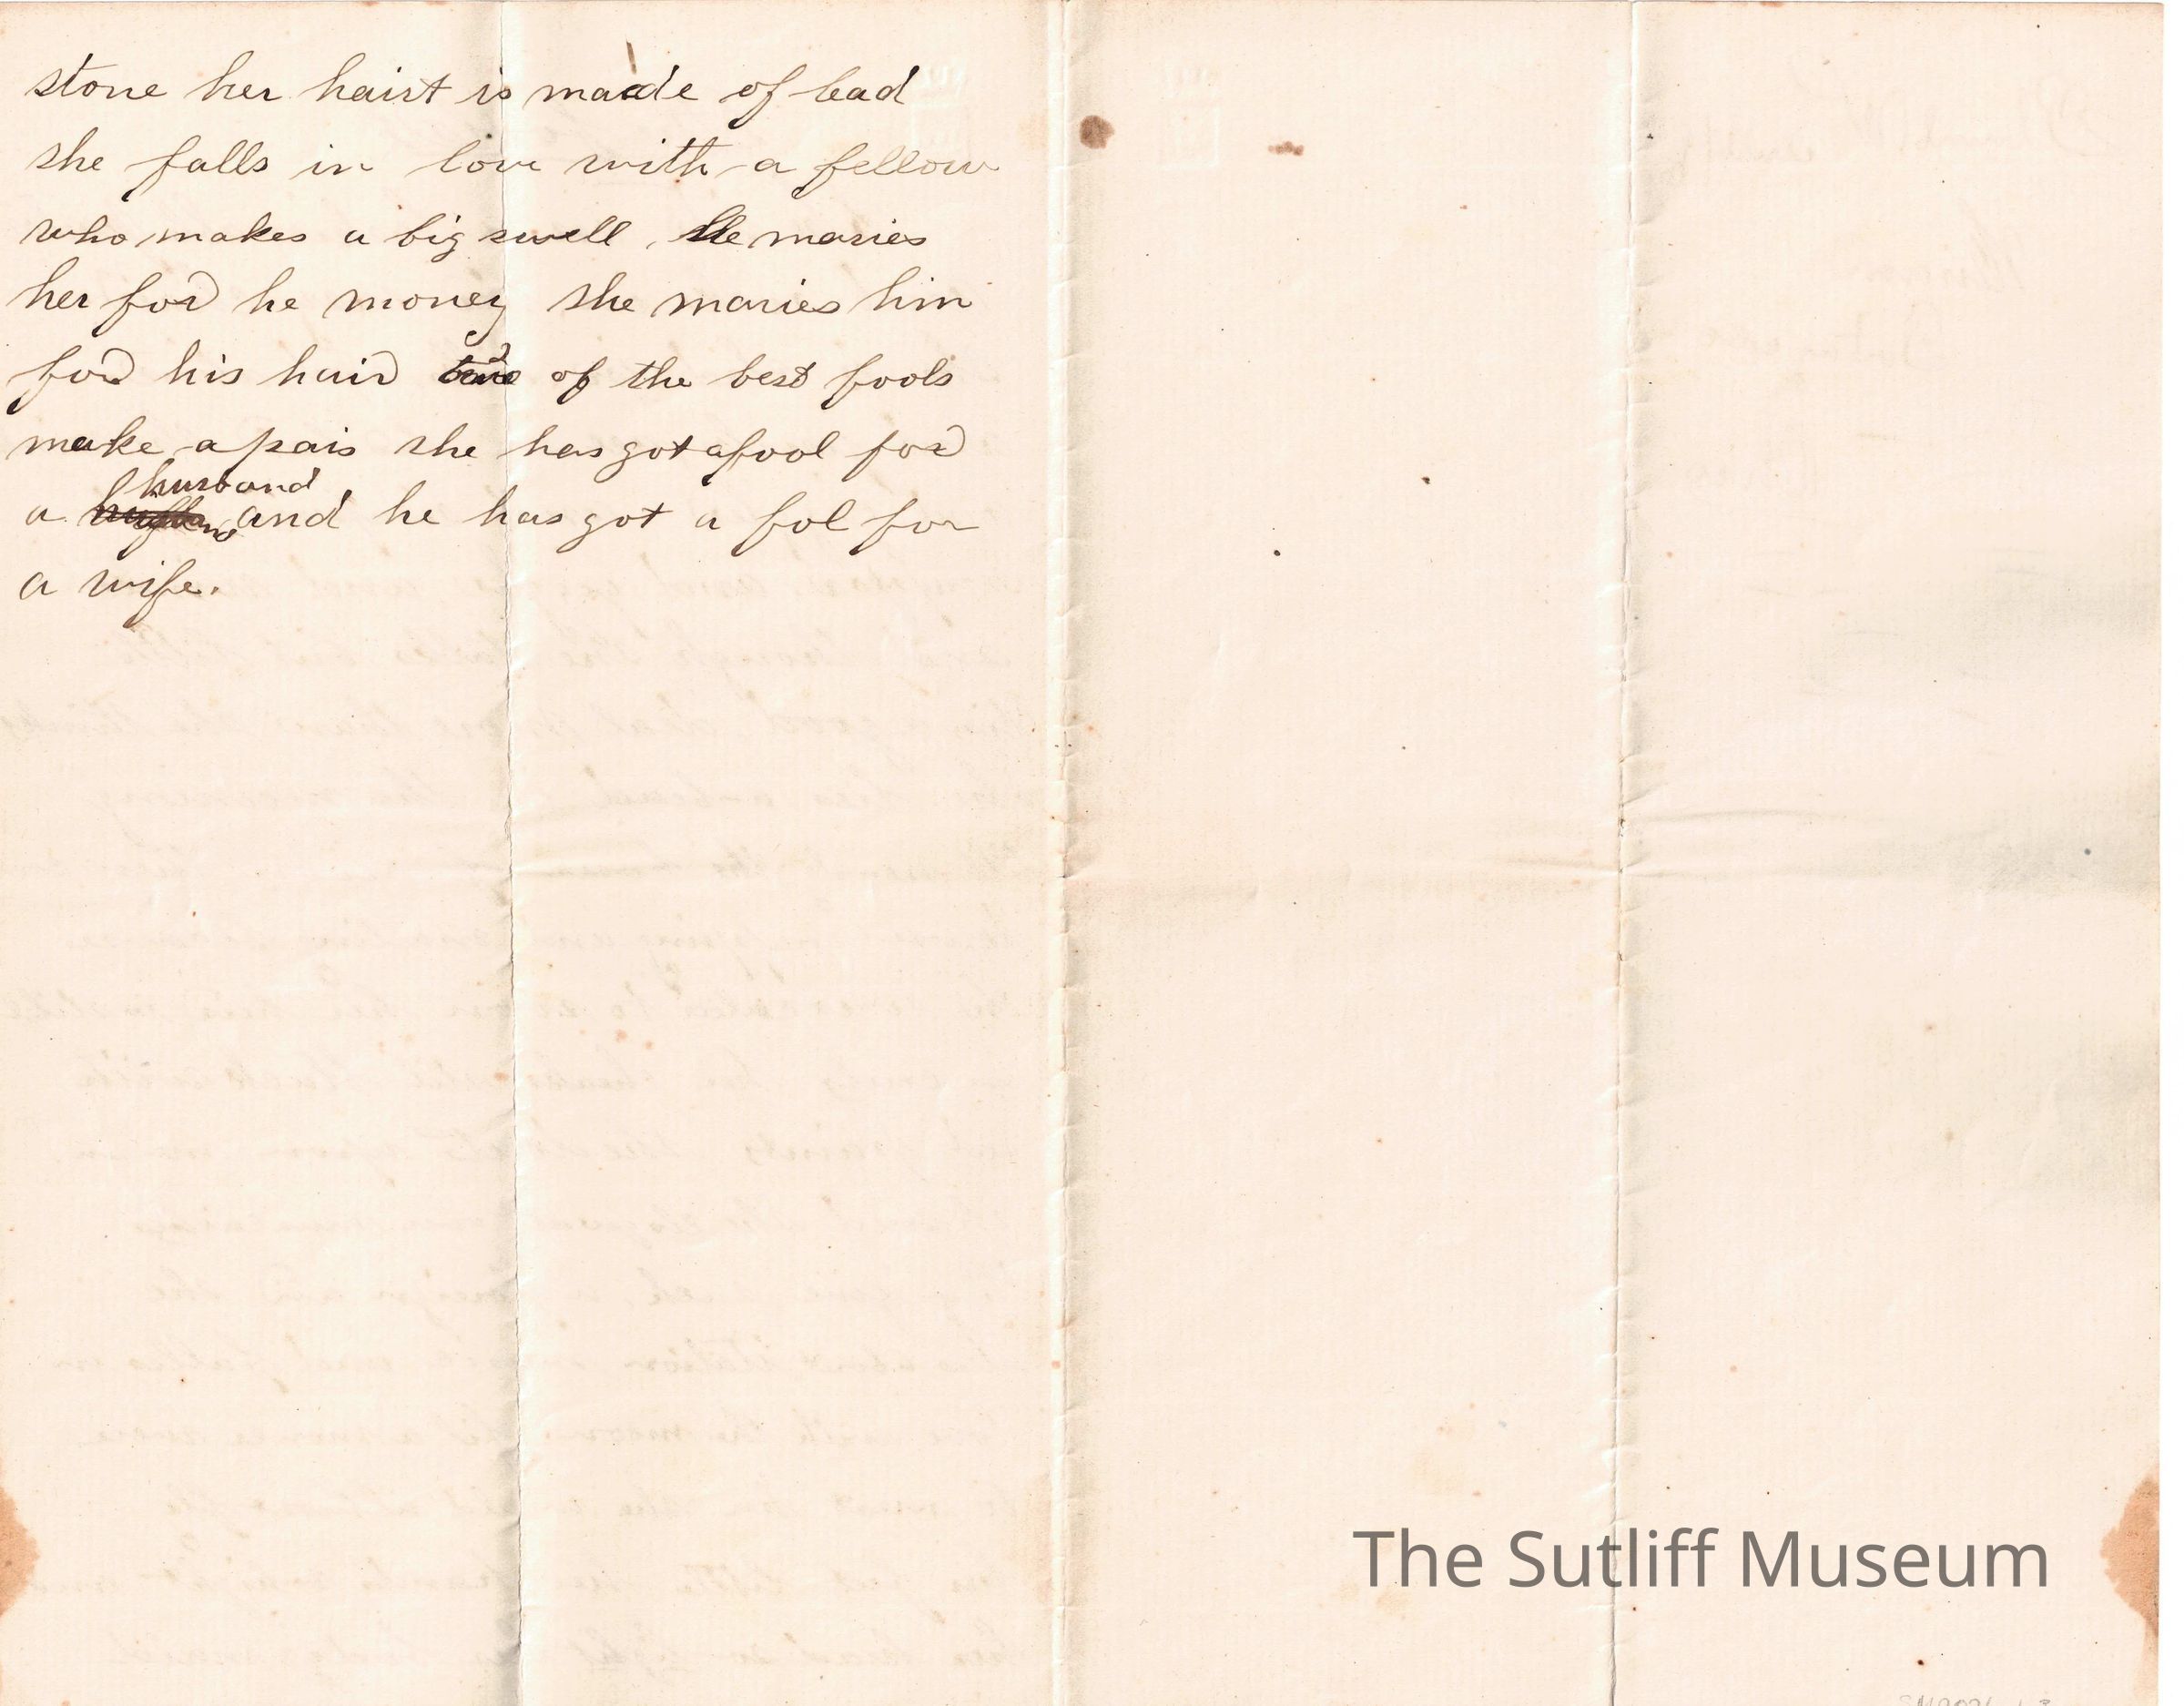 stone her hairt is made of lead
she falls in love with a fellow
who makes a big swell, He maries
her for he money she maries him
for his hair of the best fools
make a pair she has got a fool for
a husband and he has got a fol for
a wife.
The Sutliff Museum